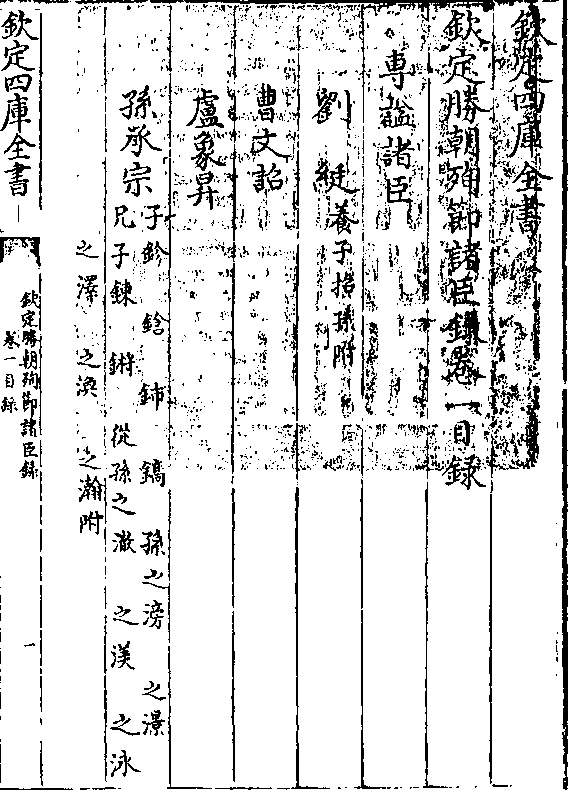 欽定四庫全書
欽定勝朝殉節諸臣錄卷一目錄
專諡諸臣
劉綎養子招孫附
曹文詔
盧象昇
孫承宗子鉁 鋡 鈰 鎬 孫之滂 之澋
兄子鍊 鏘 從孫之澈 之渼 之泳
之澤 之渙 之瀚附
欽定四庫全書
欽定勝朝殉節諸臣錄
卷一目錄
一